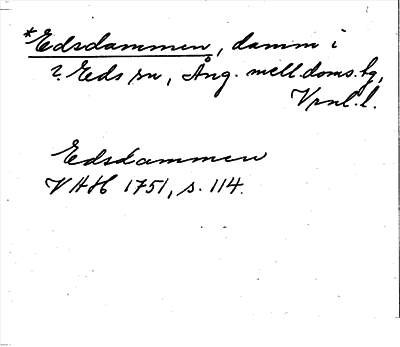 *Edsdammen, damm i
? Eds sn, Ång. mell. doms. bg,
Vrnl. l.
Edsdammen
VAH 1751, s. 114.